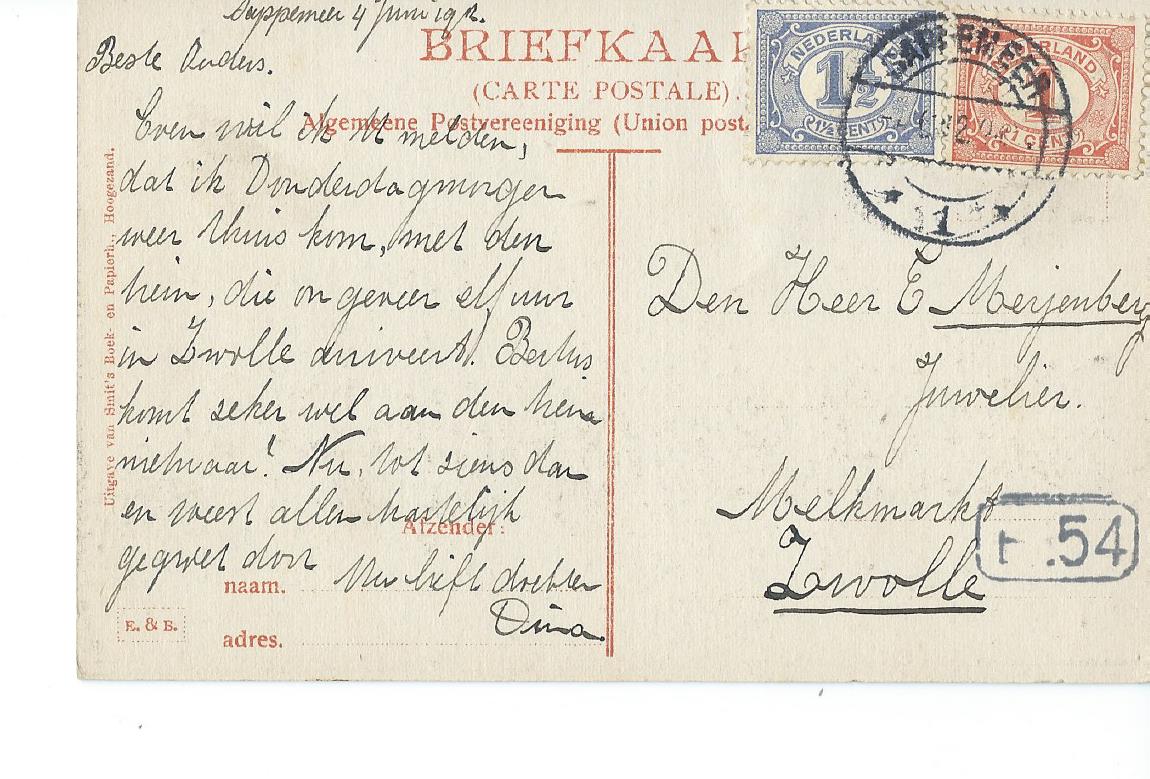 Sappemeer 4 Juni 1912.
Beste Ouders.
Even wil ik U melden,
dat ik Donderdagmorgen
weer thuis kom, met den
trein, die ongeveer elf uur
in Zwolle arriveert. Bertus
komt zeker wel aan den trein
nietwaar! Nu, tot ziens dan
en weest allen hartelijk
gegroet door
Uw liefh dochter
Dina.
BRIEFKAA
(CARTE POSTALE).
Algemeene Postvereeniging (Union post
Uitgave van Smit's Boek- en Papierh., Hoogezand.
Afzender:
naam.
adres.
E. & B.
NEDERLAND
1½
1½ CENT
NEDERLAND
1
1 CENT
SAPPEMEER
1
Den Heer E Meijenberg
Juwelier.
Melkmarkt
Zwolle
.54